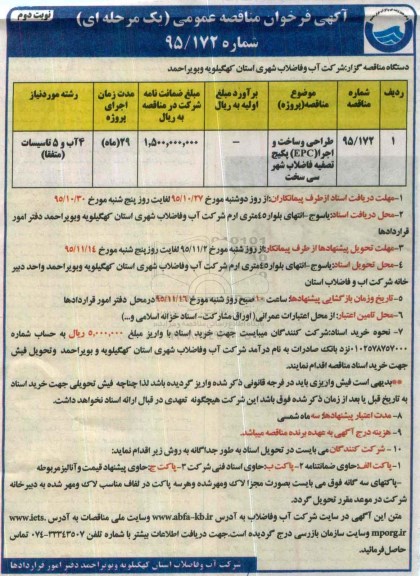 آگهی فرخوان مناقصه عمومی (یک مرحله ای)
نوبت دوم
شماره ۹۵/۱۷۲
دستگاه مناقصه گزار:شرکت آب وفاضلاب شهری استان کهگیلویه وبویراحمد
ردیف
شماره مناقصه
موضوع مناقصه(پروژه)
برآورد مبلغ اولیه به ریال
مبلغ ضمانت نامه شرکت در مناقصه به ریال
مدت زمان اجرای پروژه
رشته موردنیاز
۱
۹۵/۱۷۲
طراحی وساخت و اجرا(EPC) پکیج تصفیه فاضلاب شهر سی سخت
--
۱,۵۰۰,۰۰۰,۰۰۰
۲۹(ماه)
۴آب و ۵ تاسیسات (متفقا)
۱-مهلت دریافت اسناد ازطرف پیمانکاران:از روز دوشنبه مورخ ۹۵/۱۰/۲۷ لغایت روز پنج شنبه مورخ ۹۵/۱۰/۳۰
۲-محل دریافت اسناد:یاسوج-انتهای بلوار۴۵متری ارم شرکت آب وفاضلاب شهری استان کهگیلویه وبویراحمد دفتر امور
قراردادها
۳-مهلت تحویل پیشنهادها ازطرف پیمانکار:از روز شنبه مورخ ۹۵/۱۱/۲ لغایت روز پنج شنبه مورخ ۹۵/۱۱/۱۴
۴-محل تحویل اسناد:یاسوج-انتهای بلوار۴۵متری ارم شرکت آب وفاضلاب شهری استان کهگیلویه وبویراحمد واحد دبیر
خانه شرکت اب و فاضلاب استان
۵-تاریخ وزمان بازگشایی پیشنهادها: ساعت ۱۰صبح روز شنبه مورخ ۹۵/۱۱/۱۶ درمحل دفتر امور قراردادها
۶-محل تامین اعتبار: از محل اعتبارات عمرانی( اوراق مشارکت- اسناد خزانه اسلامی و...)
۷- نحوه خرید اسناد:شرکت کنندگان میبایست جهت خرید اسناد با واریز مبلغ ۵,۰۰۰,۰۰۰ ریال به حساب شماره
۰۱۰۲۵۷۸۷۵۷۰۰۰نزد بانک صادرات به نام درآمد شرکت آب وفاضلاب شهری استان کهگیلویه و بویراحمد وتحویل فیش
جهت خرید اسناد مناقصه اقدام نمایند.
**بدیهی است فیش واریزی باید در فرجه قانونی ذکر شده واریز گردیده باشد لذا چناچه فیش تحویلی جهت خرید اسناد
به تاریخ قبل یا بعد از زمان ذکر شده فوق باشد این شرکت هیچگونه تعهدی در قبال ارائه اسناد نخواهد داشت.
۸- مدت اعتبار پیشنهادها: سه ماه شمسی
۹- هزینه درج آگهی به عهده برنده مناقصه میباشد.
۱۰- شرکت کنندگان می بایست در تحویل اسناد به طور جداگانه به روش زیر اقدام نماید:
۱-پاکت الف:حاوی ضمانتنامه ۲-پاکت ب:حاوی اسناد فنی شرکت ۳-پاکت ج:حاوی پیشنهاد قیمت وآنالیزمربوطه
-پاکتهای سه گانه فوق می بایست بصورت مجزا لاک ومهرشده وهرسه پاکت در لفاف مناسب لاک ومهر شده به دبیرخانه
شرکت در موعد مقرر تحویل گردد.
متن این آگهی در سایت شرکت آب وفاضلاب به آدرس www.abfa-kb.ir وسایت ملی مناقصات به آدرس www.iets.
mporg.ir وسایت سازمان بازرسی درج گردیده است.جهت دریافت اطلاعات بیشتر با شماره تلفن ۳۳۳۴۳۵۰۷-۰۷۴ تماس
حاصل فرمائید.
شرکت آب وفاضلاب استان کهگیلویه وبویراحمد دفتر امور قراردادها